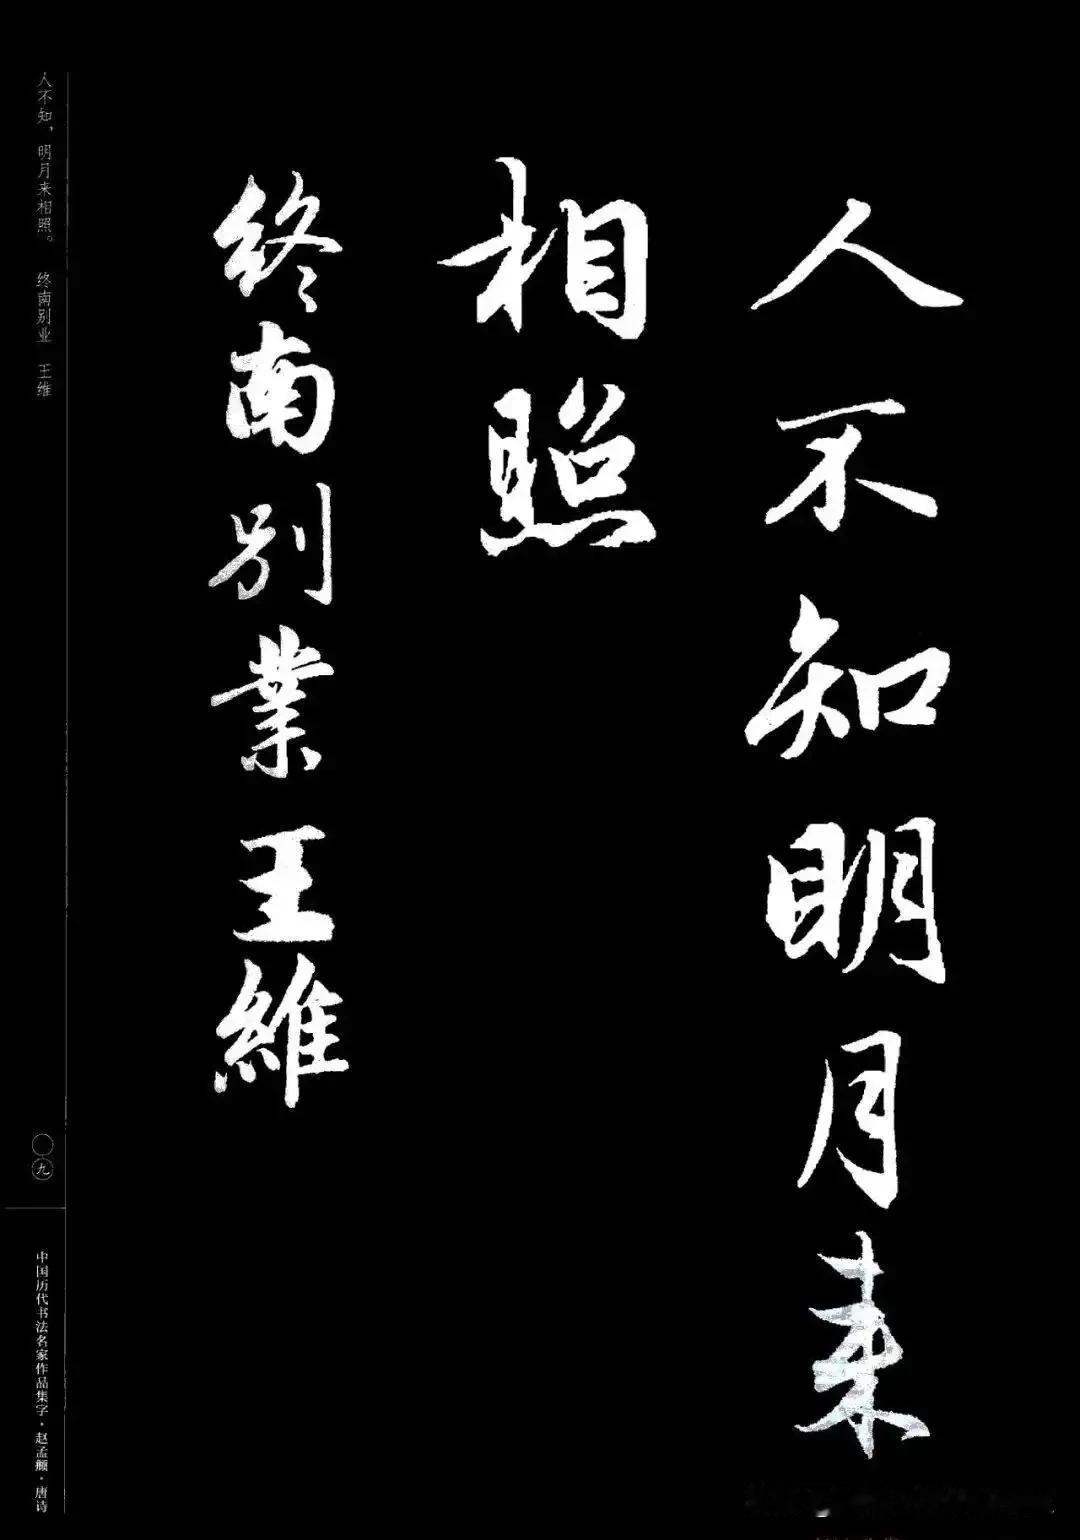 人不知明月来
相照
終南别業王維
人不知，明月来相照。　终南别业　王维
〇九
中国历代书法名家作品集字·赵孟頫·唐诗